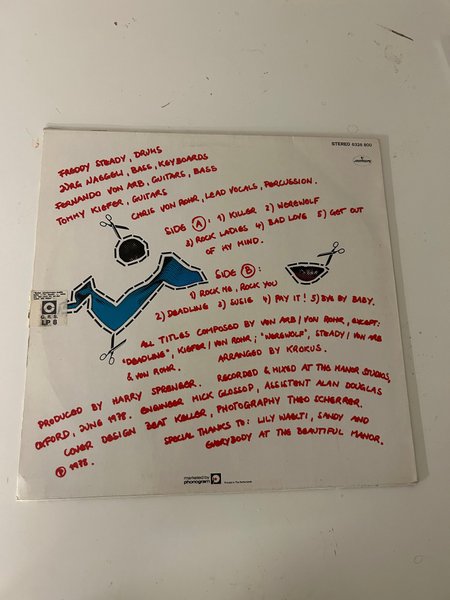 STEREO 6326 800
mercury
FREDDY STEADY, DRUMS
JÜRG NAEGELI, BASS, KEYBOARDS
FERNANDO VON ARB, GUITARS, BASS
TOMMY KIEFER, GUITARS
CHRIS VON ROHR, LEAD VOCALS, PERCUSSION.
SIDE A: 1) KILLER 2) WEREWOLF
3) ROCK LADIES 4) BAD LOVE 5) GET OUT
OF MY MIND.
SIDE B:
1) ROCK ME, ROCK YOU
2) DEADLINE 3) SUSIE 4) PAY IT! 5) BYE BY BABY.
ALL TITLES COMPOSED BY VON ARB / VON ROHR, EXCEPT:
"DEADLINE", KIEFER / VON ROHR; "WEREWOLF", STEADY / VON ARB
& VON ROHR. ARRANGED BY KROKUS.
PRODUCED BY HARRY SPRENGER. RECORDED & MIXED AT THE MANOR STUDIOS,
OXFORD, JUNE 1978. ENGINEER MICK GLOSSOP, ASSISTENT ALAN DOUGLAS
COVER DESIGN BEAT KELLER, PHOTOGRAPHY THEO SCHERRER.
℗ 1978. SPECIAL THANKS TO: LILY WAELTI, SANDY AND
EVERYBODY AT THE BEAUTIFUL MANOR.
LP 6
marketed by
phonogram
Printed in The Netherlands